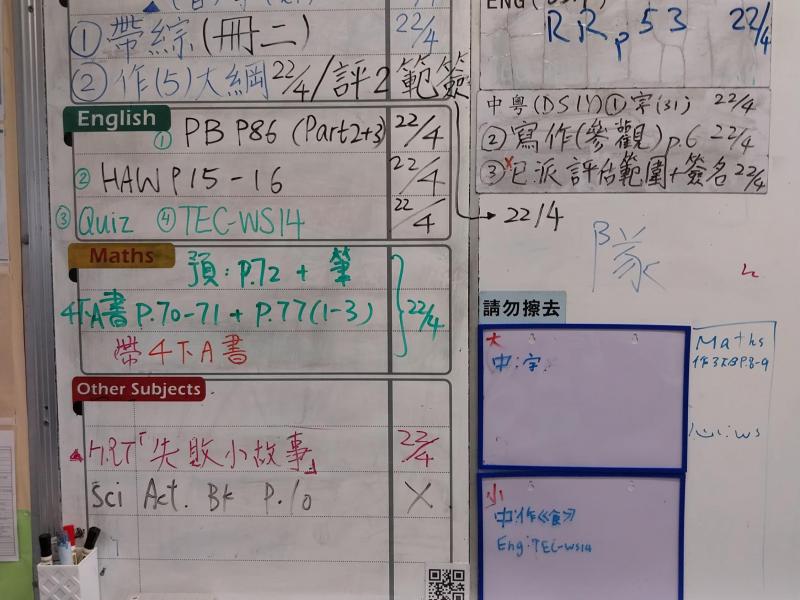 ① 帶綜(冊二) 22/4
② 作(5)大綱 22/4 / 評2 範簽
English
① PB P86 (Part2+3) 22/4
② HAW P15-16 22/4
③ Quiz ④ TEC-WS14 22/4
Maths
預: P.72 + 筆
4下A書 P.70-71 + P.77(1-3) 22/4
帶4下A書
Other Subjects
「失敗小故事」 22/4
Sci Act. Bk P.10 X
RR p53 22/4
中粵(DS1Y)① 字(31) 22/4
② 寫作(參觀) p.6 22/4
③ 已派評估範圍+簽名 22/4
22/4
隊
請勿擦去
大
中:字
Maths
小
中:作《食》
Eng:TEC-WS14